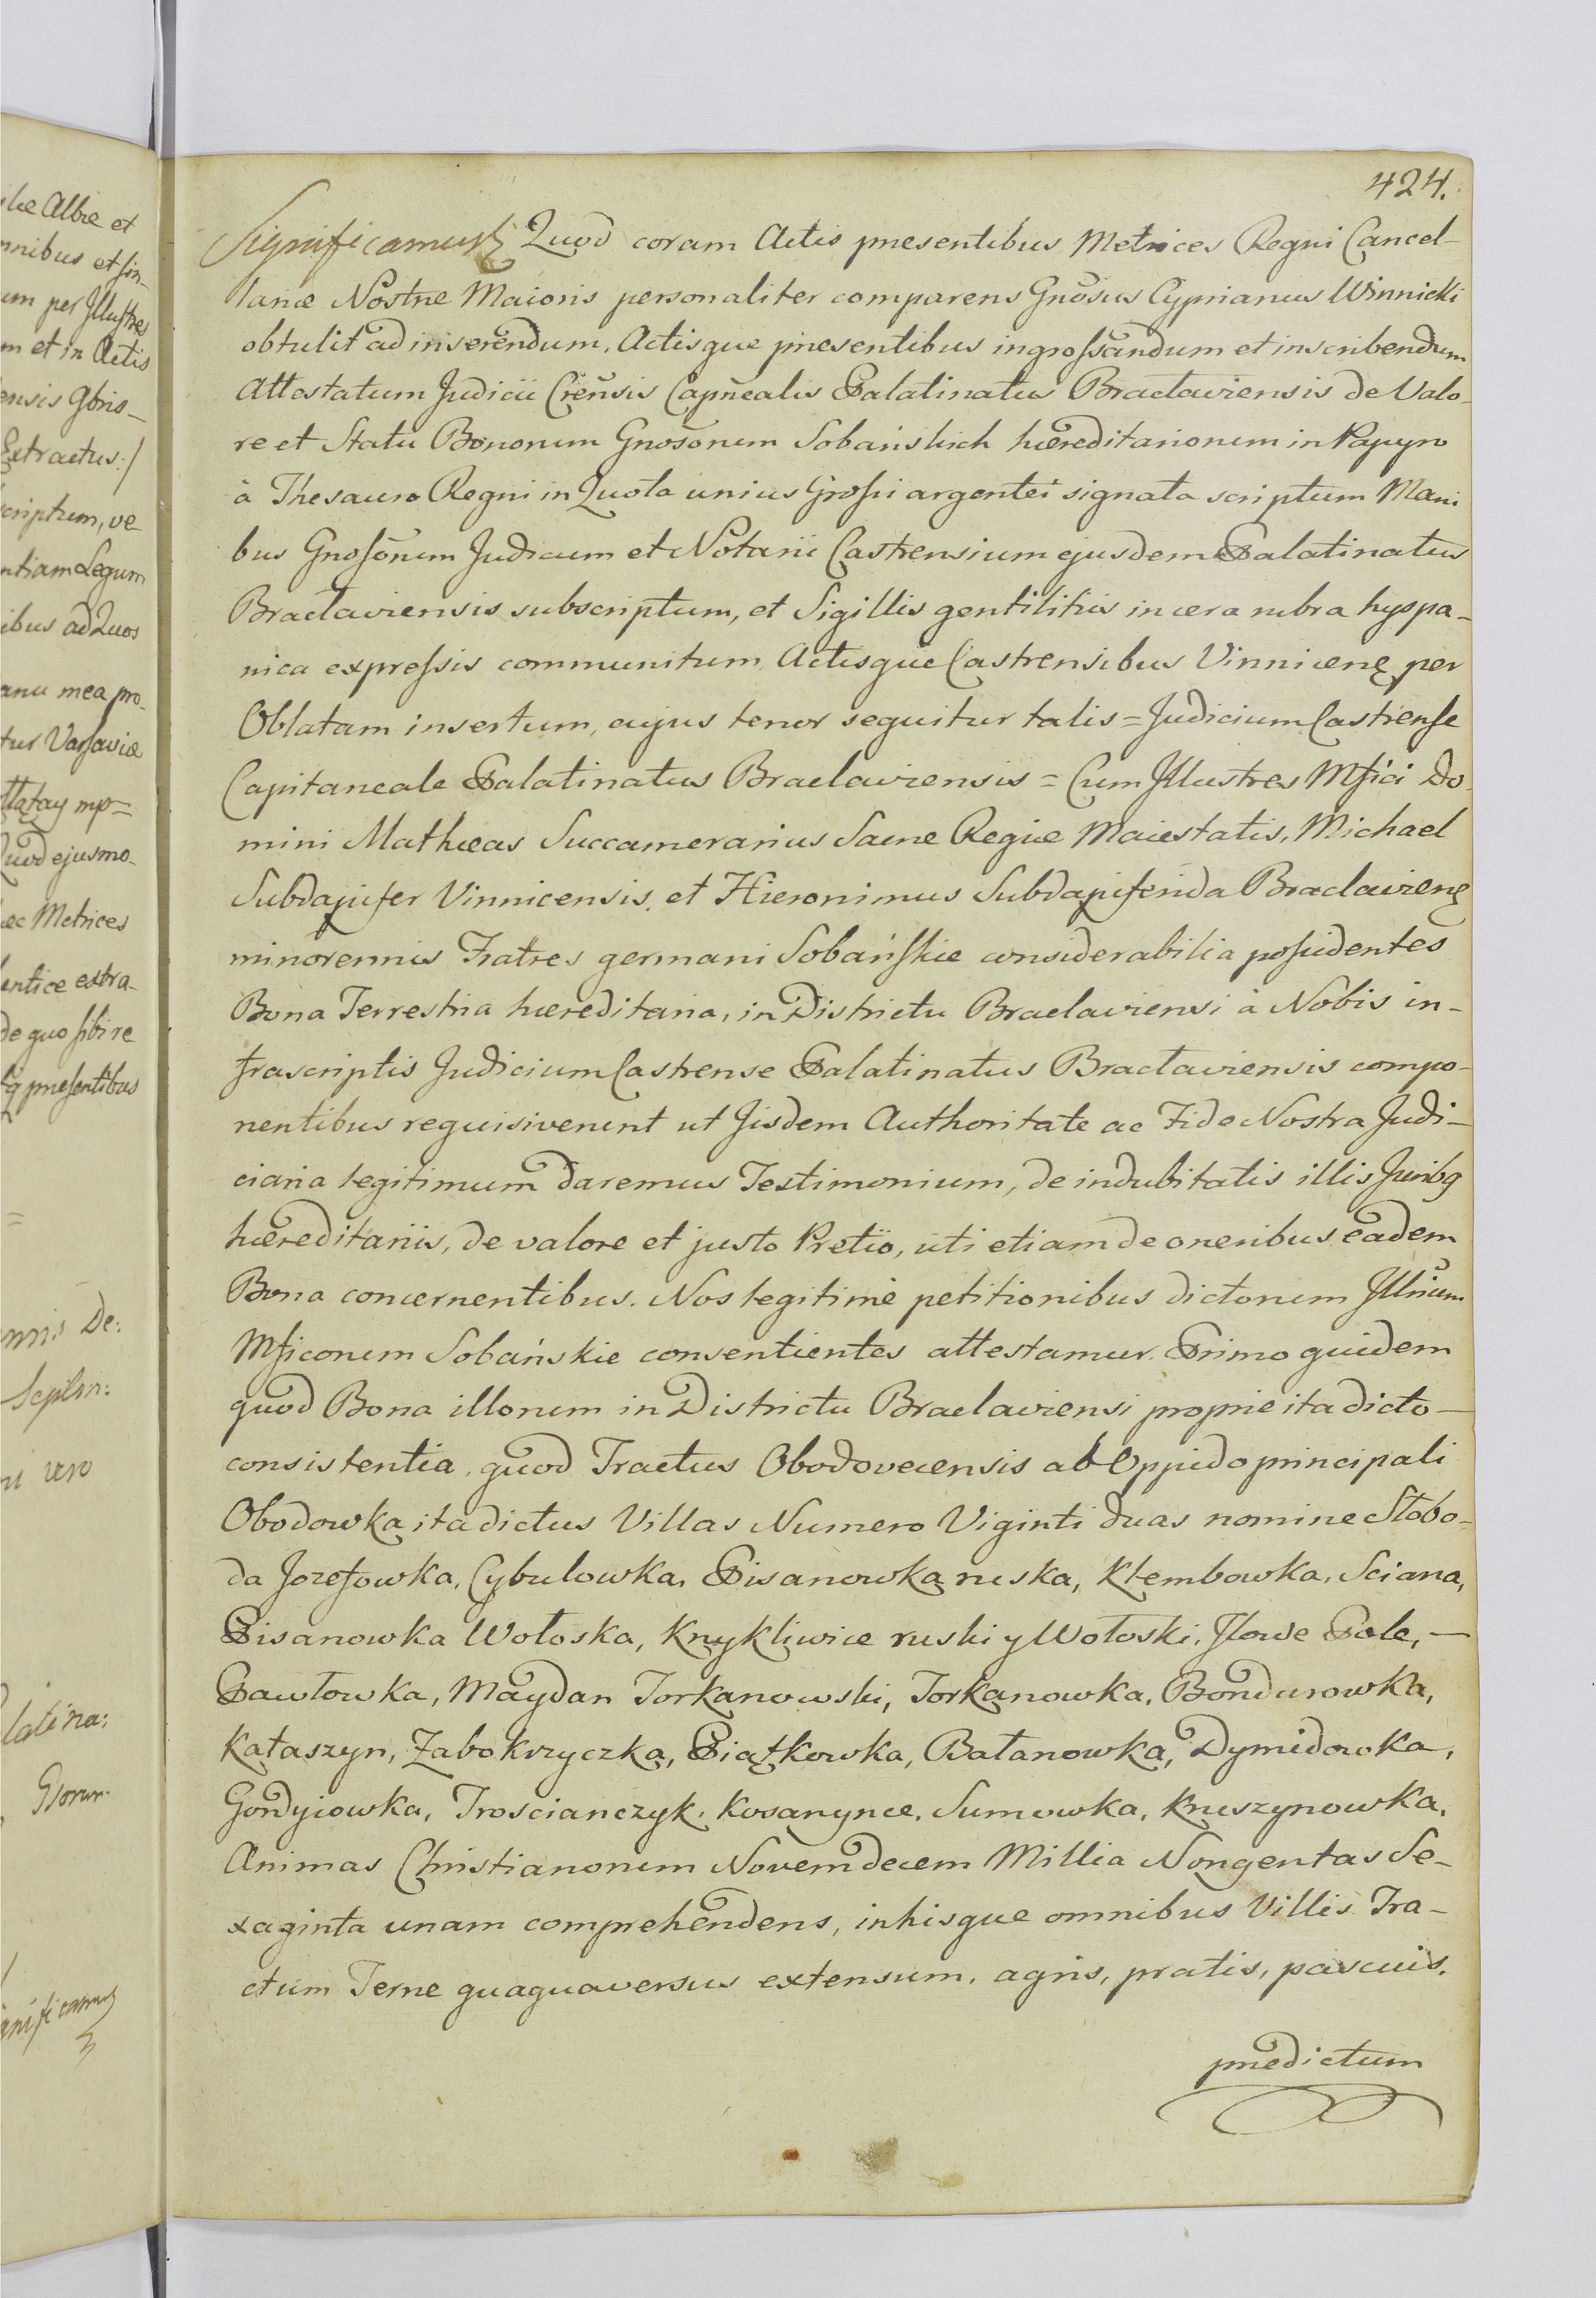 424.
Significamus Quod coram Actis præsentibus Metrices Regni Cancel-
lariæ Nostræ Maioris personaliter comparens Gnosus Cyprianus Winnicki
obtulit ad inserendum, Actisque præsentibus ingrossandum et inscribendum
Attestatum Judicii Crensis Capnealis Palatinatus Braclaviensis de Valo-
re et Statu Bonorum Gnosorum Sobańskich hæreditariorum in Papyro
à Thesauro Regni in Quota unius Grossi argentei signata scriptum Mani
bus Gnosorum Judicum et Notarii Castrensium ejusdem Palatinatus
Braclaviensis subscriptum, et Sigillis gentilitiis in cera rubra hyspa-
nica expressis communitum Actisque Castrensibus Vinnicen per
Oblatam insertum, cujus tenor sequitur talis = Judicium Castrense
Capitaneale Palatinatus Braclaviensis = Cum Illustres Mfici Do
mini Mathæas Succamerarius Sacræ Regiæ Maiestatis, Michael
Subdapifer Vinnicensis, et Hieronimus Subdapiferida Braclavien
minorennis Fratres germani Sobańskie considerabilia possidentes
Bona Terrestria hæreditaria, in Districtu Braclaviensi à Nobis in-
frascriptis Judicium Castrense Palatinatus Braclaviensis compo-
nentibus requisiverunt ut Iisdem Authoritate ac Fide Nostra Judi-
ciaria legitimum daremus Testimonium, de indubitatis illis Juribq
hæreditariis, de valore et justo Pretio, uti etiam de oneribus eadem
Bona concernentibus. Nos legitimè petitionibus dictorum Illrium
Mficorum Sobańskie consentientes attestamur. Primo quidem
quod Bona illorum in Districtu Braclaviensi proprie ita dicto —
consistentia, quod Tractus Obodovecensis ab Oppido principali
Obodowka ita dictus Villas Numero Viginti duas nomine Słobo-
da Jozefowka, Cybulowka, Pisarowka ruska, Kłembowka, Sciana,
Pisarowka Wołoska, Knykliwice ruski y Wołoski, Iłowe Pole, —
Pawłowka, Maydan Torkanowski, Torkanowka, Bondurowka,
Kataszyn, Zabokrzyczka, Piątkowka, Bałanowka, Dymidowka,
Gordyiowka, Troscianczyk, Kosarynce, Sumowka, Kruszynowka,
Animas Christianorum Novemdecem Millia Nongentas Se-
xaginta unam comprehendens, in hisque omnibus Villis Tra-
ctum Terræ quaquaversus extensum, agris, pratis, pascuis,
prædictum